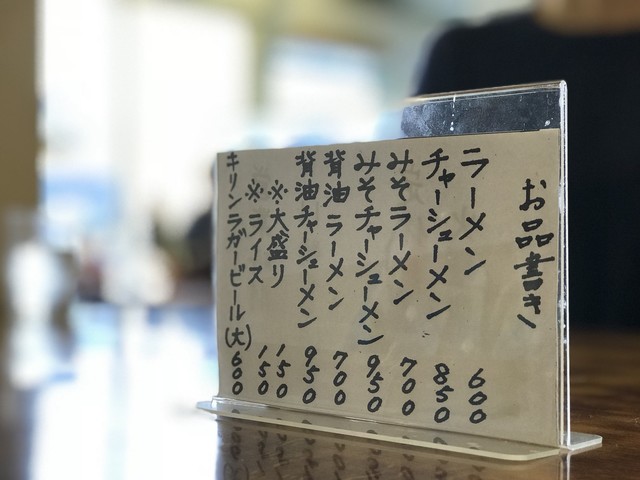 お品書き
ラーメン 600
チャーシューメン 850
みそラーメン 700
みそチャーシューメン 950
背油ラーメン 700
背油チャーシューメン 950
※大盛り 150
※ライス 150
キリンラガービール(大) 600